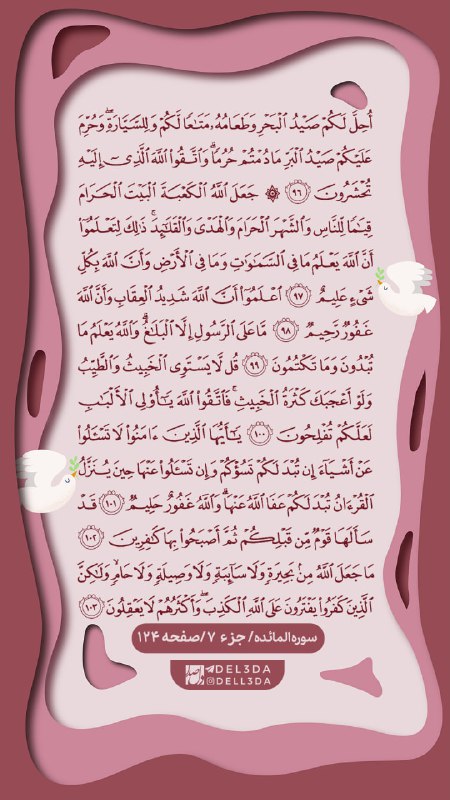 أُحِلَّ لَكُمۡ صَيۡدُ ٱلۡبَحۡرِ وَطَعَامُهُۥ مَتَٰعٗا لَّكُمۡ وَلِلسَّيَّارَةِۖ وَحُرِّمَ
عَلَيۡكُمۡ صَيۡدُ ٱلۡبَرِّ مَا دُمۡتُمۡ حُرُمٗاۗ وَٱتَّقُواْ ٱللَّهَ ٱلَّذِيٓ إِلَيۡهِ
تُحۡشَرُونَ ٩٦ ۞ جَعَلَ ٱللَّهُ ٱلۡكَعۡبَةَ ٱلۡبَيۡتَ ٱلۡحَرَامَ
قِيَٰمٗا لِّلنَّاسِ وَٱلشَّهۡرَ ٱلۡحَرَامَ وَٱلۡهَدۡيَ وَٱلۡقَلَٰٓئِدَۚ ذَٰلِكَ لِتَعۡلَمُوٓاْ
أَنَّ ٱللَّهَ يَعۡلَمُ مَا فِي ٱلسَّمَٰوَٰتِ وَمَا فِي ٱلۡأَرۡضِ وَأَنَّ ٱللَّهَ بِكُلِّ
شَيۡءٍ عَلِيمٌ ٩٧ ٱعۡلَمُوٓاْ أَنَّ ٱللَّهَ شَدِيدُ ٱلۡعِقَابِ وَأَنَّ ٱللَّهَ
غَفُورٞ رَّحِيمٞ ٩٨ مَّا عَلَى ٱلرَّسُولِ إِلَّا ٱلۡبَلَٰغُۗ وَٱللَّهُ يَعۡلَمُ مَا
تُبۡدُونَ وَمَا تَكۡتُمُونَ ٩٩ قُل لَّا يَسۡتَوِي ٱلۡخَبِيثُ وَٱلطَّيِّبُ
وَلَوۡ أَعۡجَبَكَ كَثۡرَةُ ٱلۡخَبِيثِۚ فَٱتَّقُواْ ٱللَّهَ يَٰٓأُوْلِي ٱلۡأَلۡبَٰبِ
لَعَلَّكُمۡ تُفۡلِحُونَ ١٠٠ يَٰٓأَيُّهَا ٱلَّذِينَ ءَامَنُواْ لَا تَسۡـَٔلُواْ
عَنۡ أَشۡيَآءَ إِن تُبۡدَ لَكُمۡ تَسُؤۡكُمۡ وَإِن تَسۡـَٔلُواْ عَنۡهَا حِينَ يُنَزَّلُ
ٱلۡقُرۡءَانُ تُبۡدَ لَكُمۡ عَفَا ٱللَّهُ عَنۡهَاۗ وَٱللَّهُ غَفُورٌ حَلِيمٞ ١٠١ قَدۡ
سَأَلَهَا قَوۡمٞ مِّن قَبۡلِكُمۡ ثُمَّ أَصۡبَحُواْ بِهَا كَٰفِرِينَ ١٠٢
مَا جَعَلَ ٱللَّهُ مِنۢ بَحِيرَةٖ وَلَا سَآئِبَةٖ وَلَا وَصِيلَةٖ وَلَا حَامٖ وَلَٰكِنَّ
ٱلَّذِينَ كَفَرُواْ يَفۡتَرُونَ عَلَى ٱللَّهِ ٱلۡكَذِبَۖ وَأَكۡثَرُهُمۡ لَا يَعۡقِلُونَ ١٠٣
سوره‌المائده/ جزء ۷/صفحه ۱۲۴
DEL3DA
DELL3DA